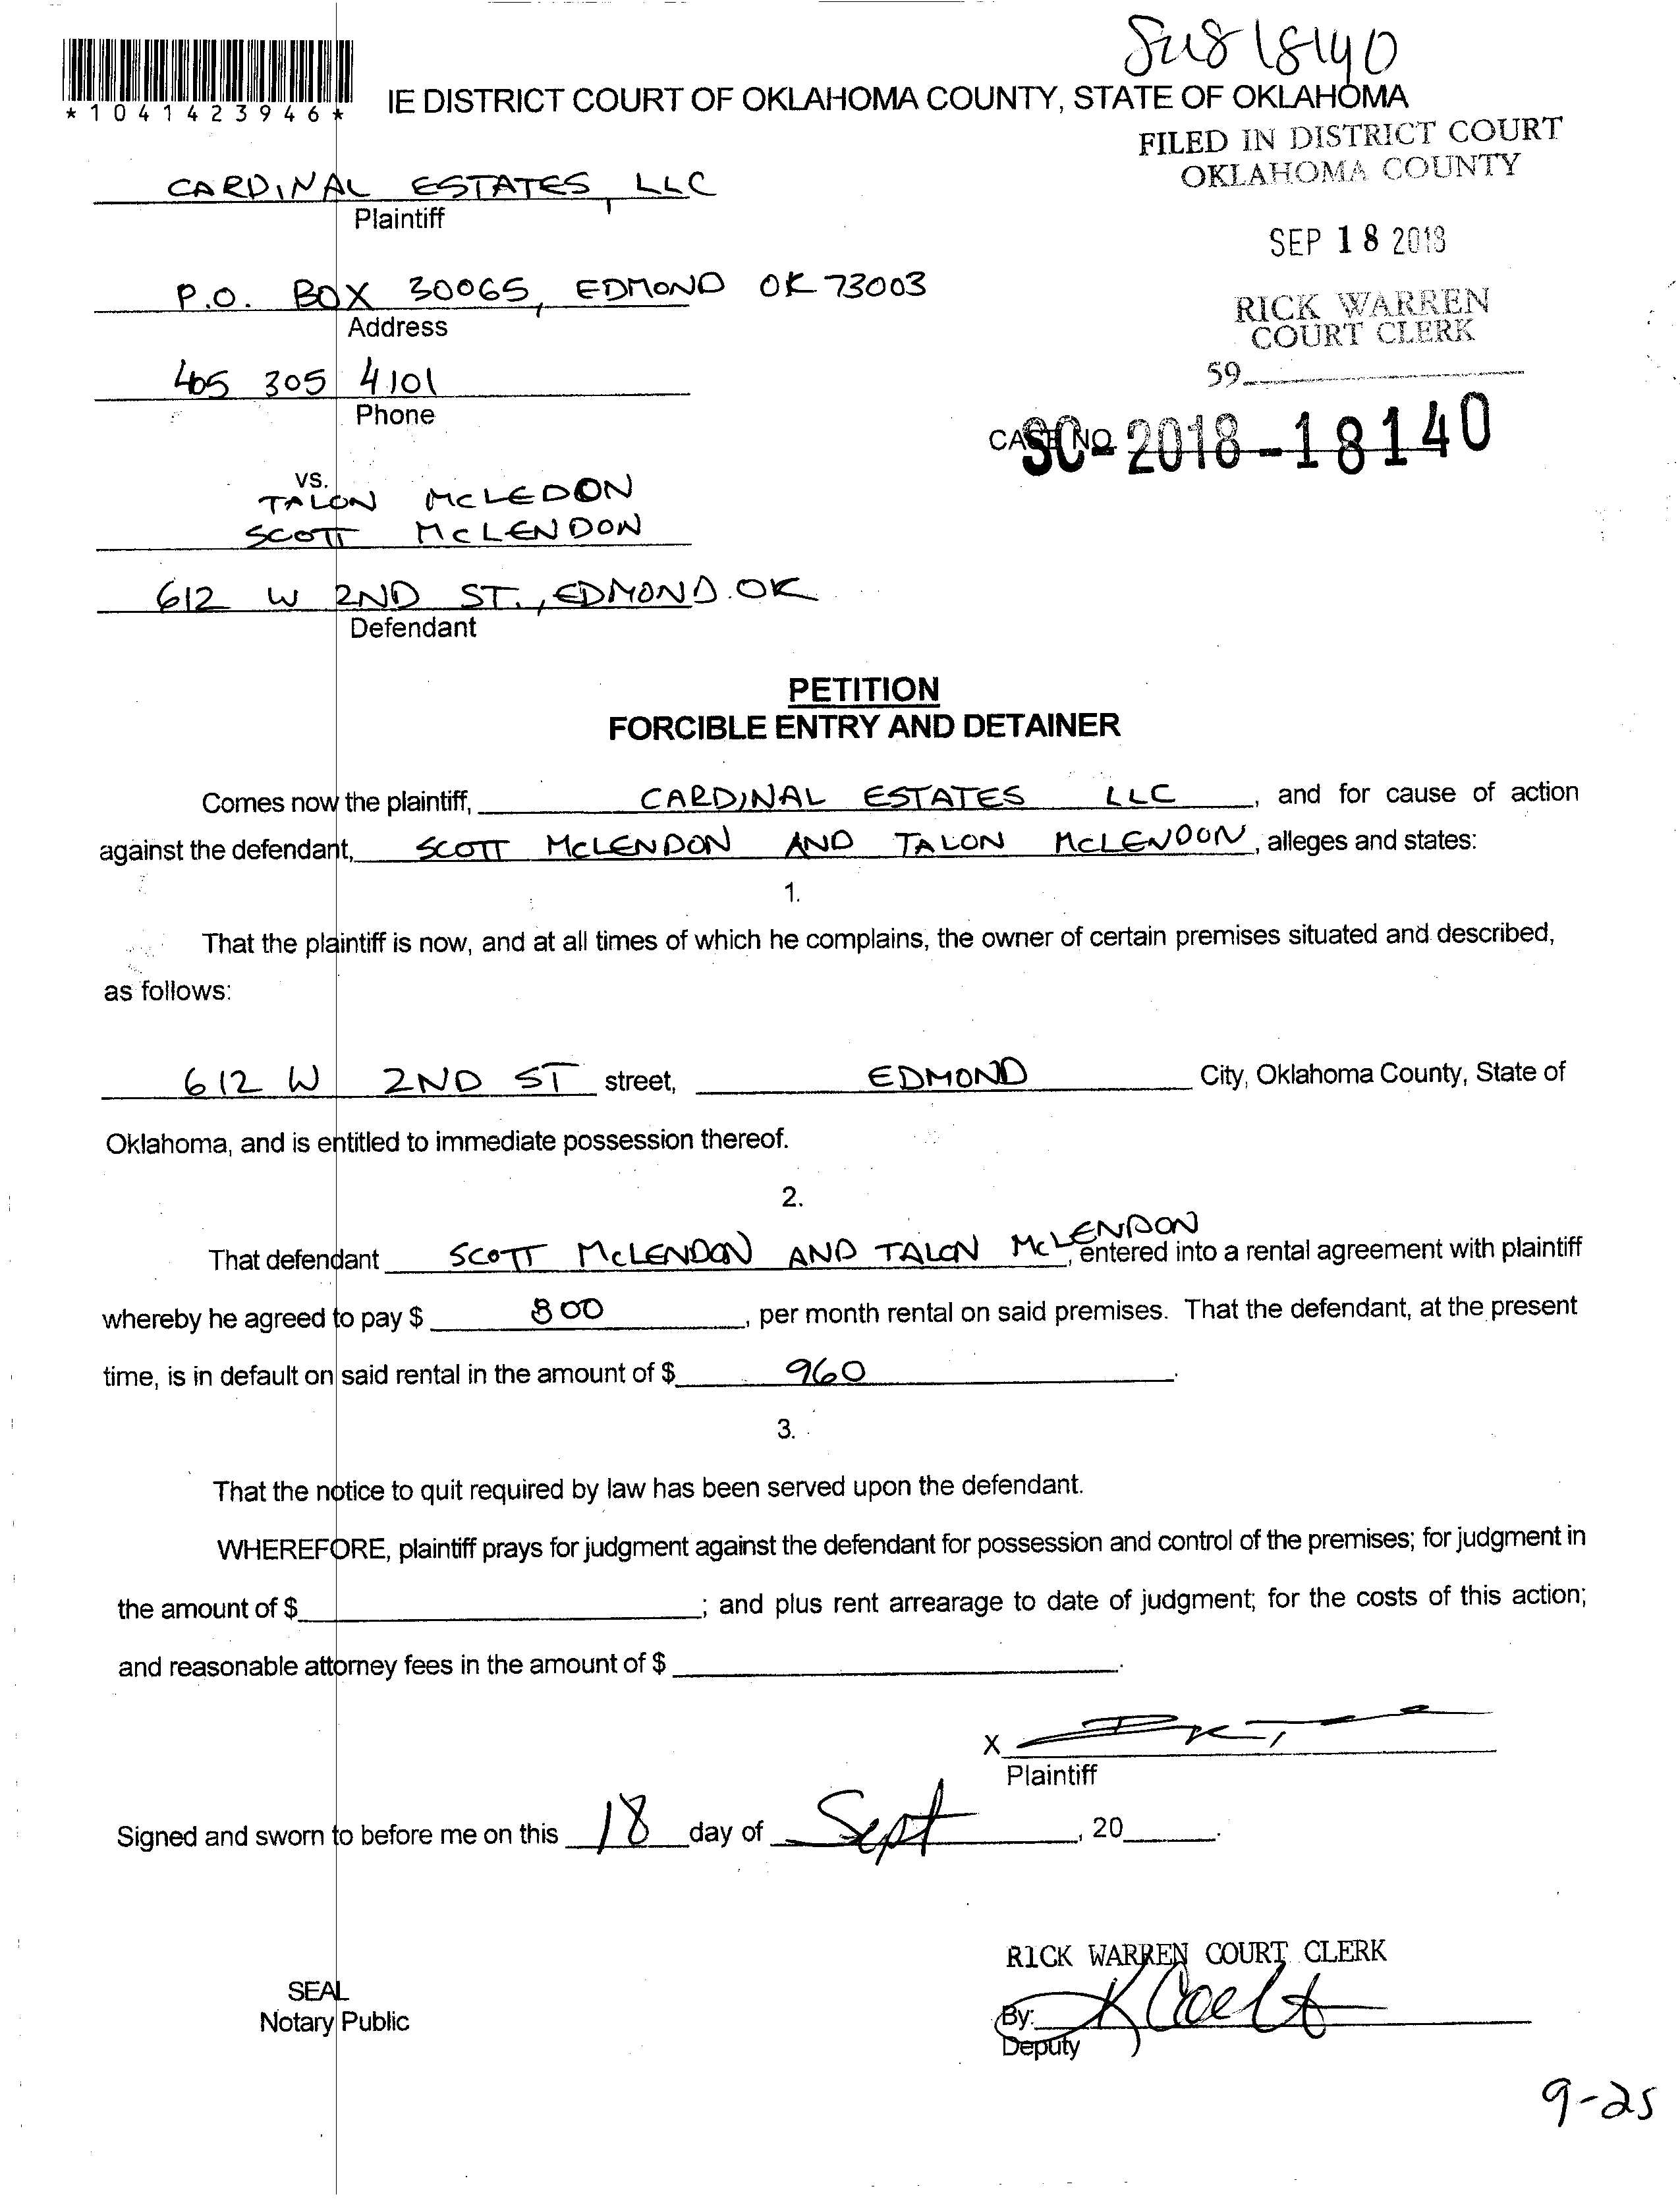 18140
*1041423946*
IE DISTRICT COURT OF OKLAHOMA COUNTY, STATE OF OKLAHOMA
FILED IN DISTRICT COURT
OKLAHOMA COUNTY
CARDINAL ESTATES, LLC
Plaintiff
SEP 18 2018
P.O. BOX 30065, EDMOND OK 73003
Address
RICK WARREN
COURT CLERK
59
405 305 4101
Phone
CASE NO. SC-2018-18140
vs.
TALON McLEDON
SCOTT McLENDON
612 W 2ND ST., EDMOND. OK
Defendant
PETITION
FORCIBLE ENTRY AND DETAINER
Comes now the plaintiff, CARDINAL ESTATES LLC, and for cause of action
against the defendant, SCOTT McLENDON AND TALON McLENDON, alleges and states:
1.
That the plaintiff is now, and at all times of which he complains, the owner of certain premises situated and described,
as follows:
612 W 2ND ST street, EDMOND City, Oklahoma County, State of
Oklahoma, and is entitled to immediate possession thereof.
2.
That defendant SCOTT McLENDON AND TALON McLENDON, entered into a rental agreement with plaintiff
whereby he agreed to pay $ 800, per month rental on said premises. That the defendant, at the present
time, is in default on said rental in the amount of $ 960.
3.
That the notice to quit required by law has been served upon the defendant.
WHEREFORE, plaintiff prays for judgment against the defendant for possession and control of the premises; for judgment in
the amount of $ ; and plus rent arrearage to date of judgment; for the costs of this action;
and reasonable attorney fees in the amount of $ .
X
Plaintiff
Signed and sworn to before me on this 18 day of Sept, 20 .
RICK WARREN COURT CLERK
SEAL
Notary Public
By:
Deputy
9-25